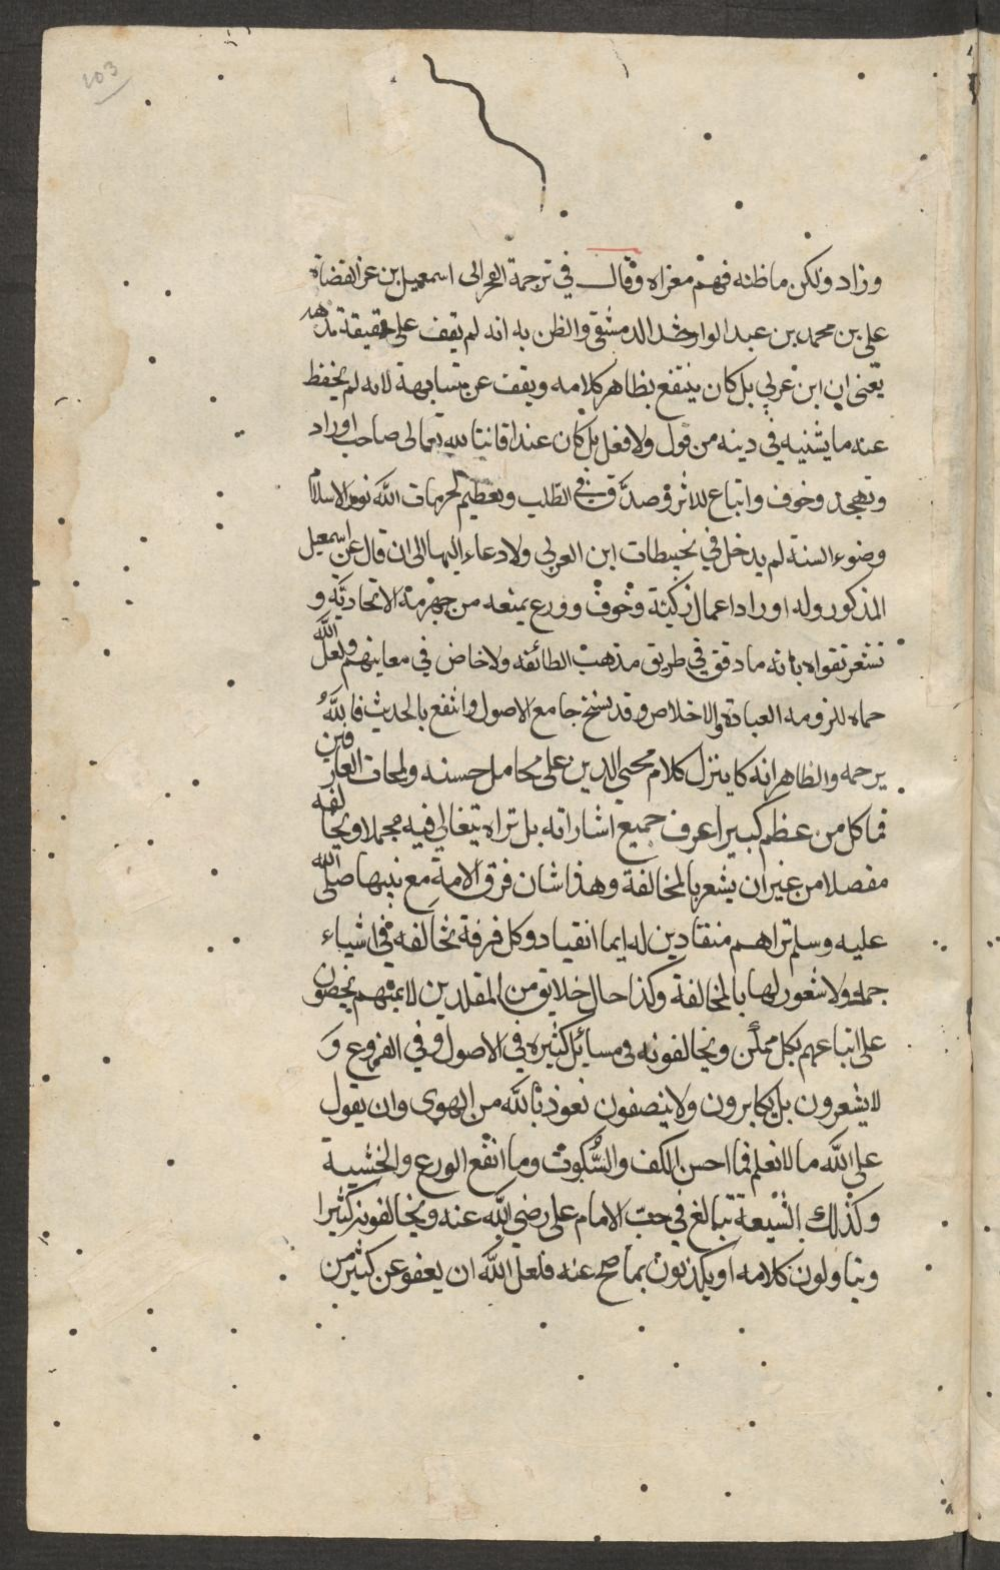 103
وزاد ولكن ما ظنه فهم مغزاه وقال في ترجمة الفخر الى اسمعيل بن عز القضاة
على بن محمد بن عبد الواحد الدمشقى والظن به انه لم يقف على حقيقة مذهبه
يعنى ان ابن عربي بل كان ينتفع بظاهر كلامه ويقف عن متشابهه لانه لم يحفظ
عنه ما يشنيه فى دينه من قول ولا فعل بل كان عبدا قانتا لله تعالى صاحب اوراد
وتهجد وخوف واتباع للاثر وصدق في الطلب وتعظيم لحرمات الله نور الاسلام
وضوء السنة لم يدخل في تخبيطات ابن العربي ولا دعاء اليها الى ان قال عن اسمعيل
المذكور وله اوراد اعمال زكية وخوف وورع يمنعه من جهرمة الاتحادية و
تشعر تقواه بانه ما دقق في طريق مذهب الطائفه ولا خاض في معانيهم ولعل الله
حماه للزومه العبادة والاخلاص وقد نسخ جامع الاصول وانتفع بالحديث فالله
يرحمه والظاهر انه كا ينزل كلام محيي الدين على محامل حسنه ولمحات العارفين
فما كل من عظم كبيرا عرف جميع اشاراته بل تراه يتغالى فيه مجملا ويخالفه
مفصلا من غير ان يشعر بالمخالفة وهذا شان فرق الامة مع نبيها صلى الله
عليه وسلم تراهم منقادين له ايما انقياد وكل فرقة تخالفه في اشياء
جمه ولا شعور لها بالمخالفة وكذا حال خلايق من المقلدين لائمتهم يحضون
على اتباعهم بكل ممكن ويخالفونه فى مسائل كثيره في الاصول وفي الفروع و
لا يشعرون بل يكابرون ولا ينصفون نعوذ بالله من الهوى وان يقول
على الله ما لا نعلم فما احسن الكف والسكوت وما انفع الورع والخشية
وكذلك الشيعة تبالغ في حب الامام على رضي الله عنه ويخالفونه كثيرا
ويتاولون كلامه او يكذبون بما صح عنه فلعل الله ان يعفو عن كثير من